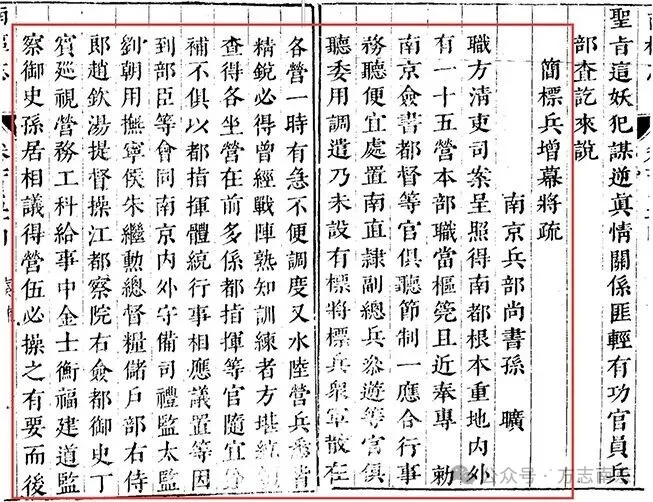 聖肯這妖犯謀逆眞情關係匪輕有功官員兵
部查訖來說
簡標兵增幕將疏
南京兵部尚書孫 曠
職方清吏司案呈照得南都根本重地內外
有一十五營本部職當樞筦且近奉專 勅
南京僉書都督等官俱聽節制一應合行事
務聽便宜處置南直隸副總兵叅遊等官俱
聽委用調遣乃未設有標將標兵衆軍散在
各營一時有急不便調度又水陸營兵
精銳必得曾經戰陣熟知訓練者方堪統
查得各坐營在前多係都指揮等官隨宜
補不俱以都指揮體統行事相應議置等因
到部臣等會同南京內外守備司禮監太監
劉朝用撫寧侯朱繼勳總督糧儲戶部右侍
郎趙欽湯提督操江都察院右僉都御史丁
賓廵視營務工科給事中金士衡福建道監
察御史孫居相議得營伍必操之有要而後
公众号 · 方志南